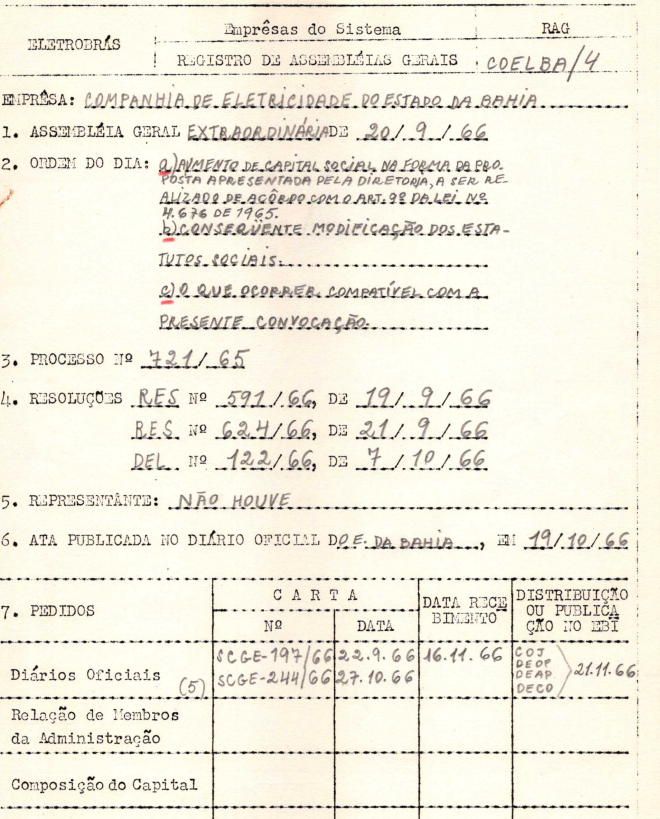 Emprêsas do Sistema
RAG
ELETROBRÁS
REGISTRO DE ASSEMBLÉIAS GERAIS
COELBA/4
EMPRÊSA: COMPANHIA DE ELETRICIDADE DO ESTADO DA BAHIA
1. ASSEMBLÉIA GERAL EXTRAORDINÁRIA DE 20/9/66
2. ORDEM DO DIA: a) AUMENTO DE CAPITAL SOCIAL NA FORMA DA PRO-
POSTA APRESENTADA PELA DIRETORIA, A SER RE-
ALIZADO DE ACÔRDO COM O ART. 9º DA LEI Nº
4.676 DE 1965.
b) CONSEQÜENTE MODIFICAÇÃO DOS ESTA-
TUTOS SOCIAIS.
c) O QUE OCORRER COMPATÍVEL COM A
PRESENTE CONVOCAÇÃO.
3. PROCESSO Nº 721/65
4. RESOLUÇÕES RES Nº 591/66, DE 19/9/66
RES. Nº 624/66, DE 21/9/66
DEL. Nº 122/66, DE 7/10/66
5. REPRESENTANTE: NÃO HOUVE
6. ATA PUBLICADA NO DIÁRIO OFICIAL DO E. DA BAHIA, EM 19/10/66
7. PEDIDOS
CARTA
Nº
DATA
DATA RECE
BIMENTO
DISTRIBUIÇÃO
OU PUBLICA
ÇÃO NO EBI
Diários Oficiais (5)
SCGE-197/66 22.9.66 16.11.66
SCGE-244/66 27.10.66
COJ
DEOP
DEAP
DECO
21.11.66
Relação de Membros
da Administração
Composição do Capital